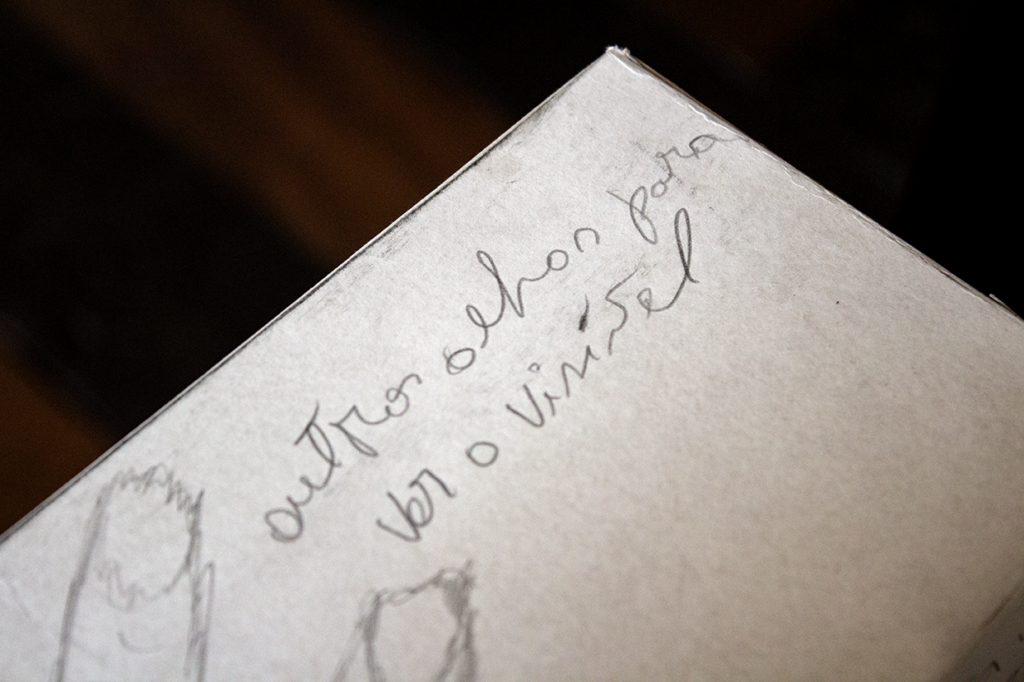 outros olhos para
ver o visível